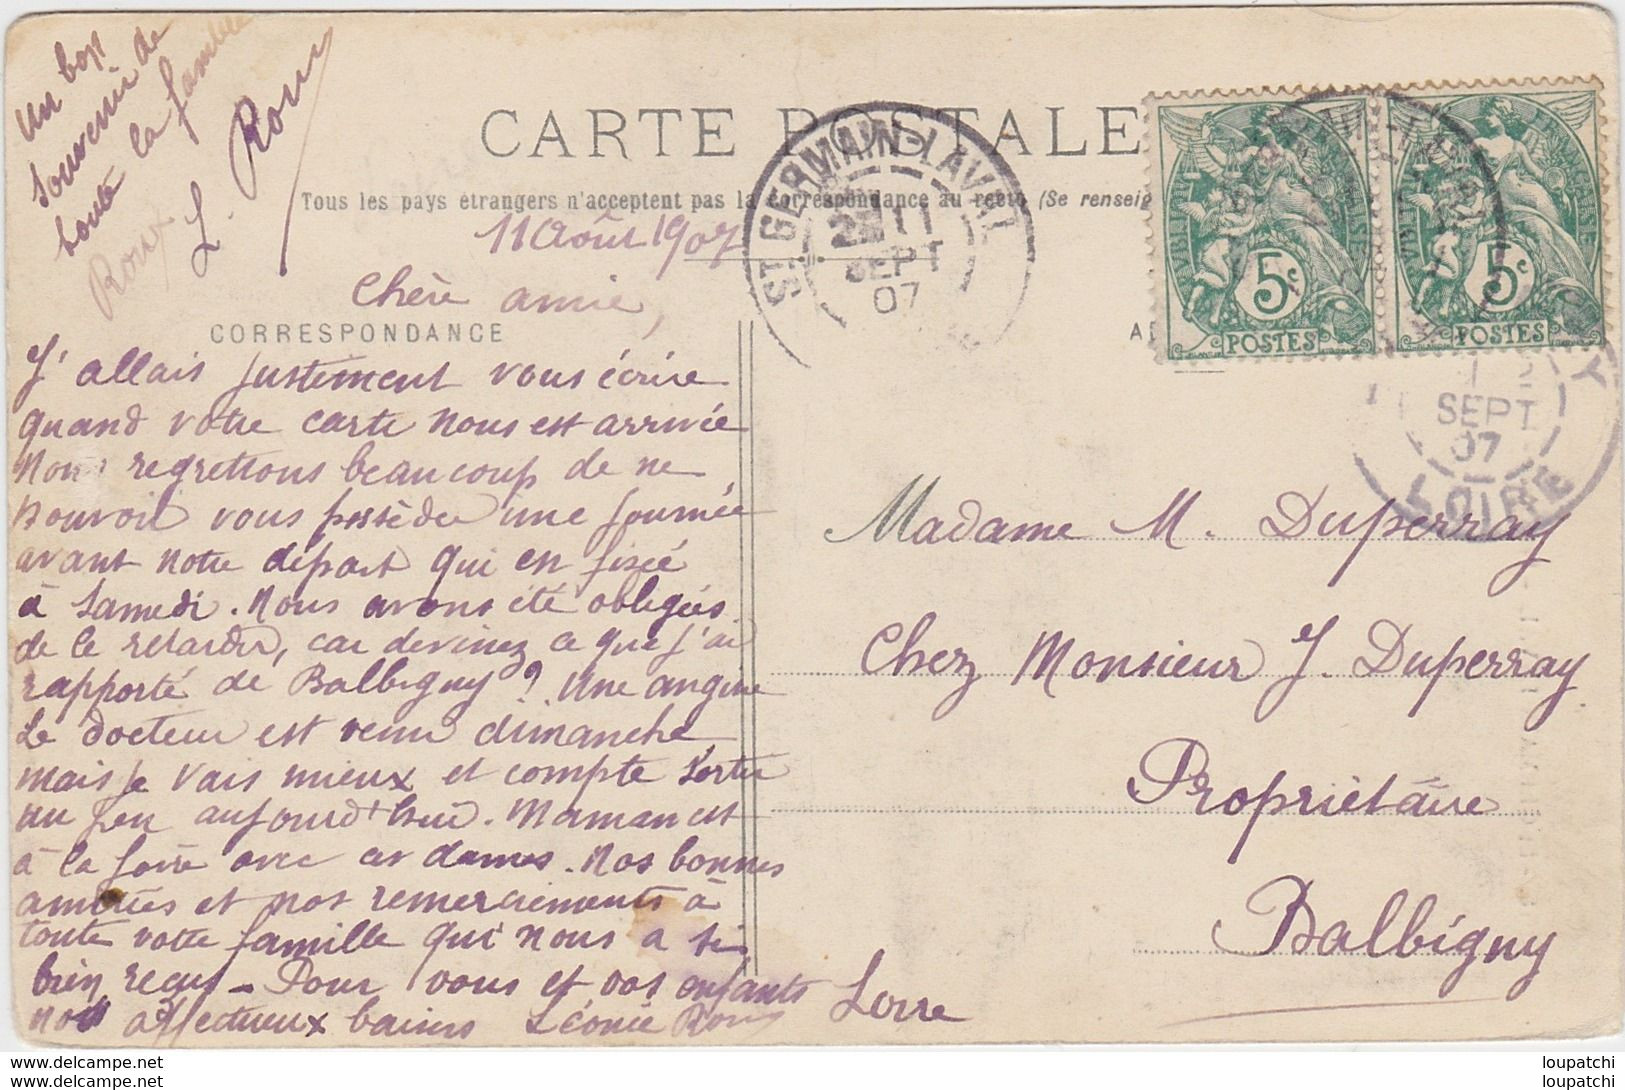 Un bon
souvenir de
toute la famille
Roux
L. Roux
CARTE POSTALE
Tous les pays étrangers n'acceptent pas la correspondance au recto (Se renseig
11 Août 1907
Chère amie,
CORRESPONDANCE
J'allais justement vous écrire
quand votre carte nous est arrivée
Nous regrettons beaucoup de ne
pouvoir vous posséder une journée
avant notre départ qui en fixée
à Samedi. Nous avons été obligées
de le retarder, car devinez ce que j'ai
rapporté de Balbigny? Une angine
Le docteur est venu dimanche,
mais je vais mieux et compte sortir
un peu aujourd'hui. Maman est
à la foire avec ces dames. Nos bonnes
amitiés et nos remerciements à
toute votre famille qui nous a si
bien reçus – Pour vous et vos enfants
nos affectueux baisers Léonie Roux
ST GERMAIN-LAVAL
11
SEPT
07
5c
POSTES
5c
POSTES
12
SEPT
07
LOIRE
Madame M. Duperray
Chez Monsieur J. Duperray
Propriétaire
Balbigny
Loire
loupatchi
loupatchi